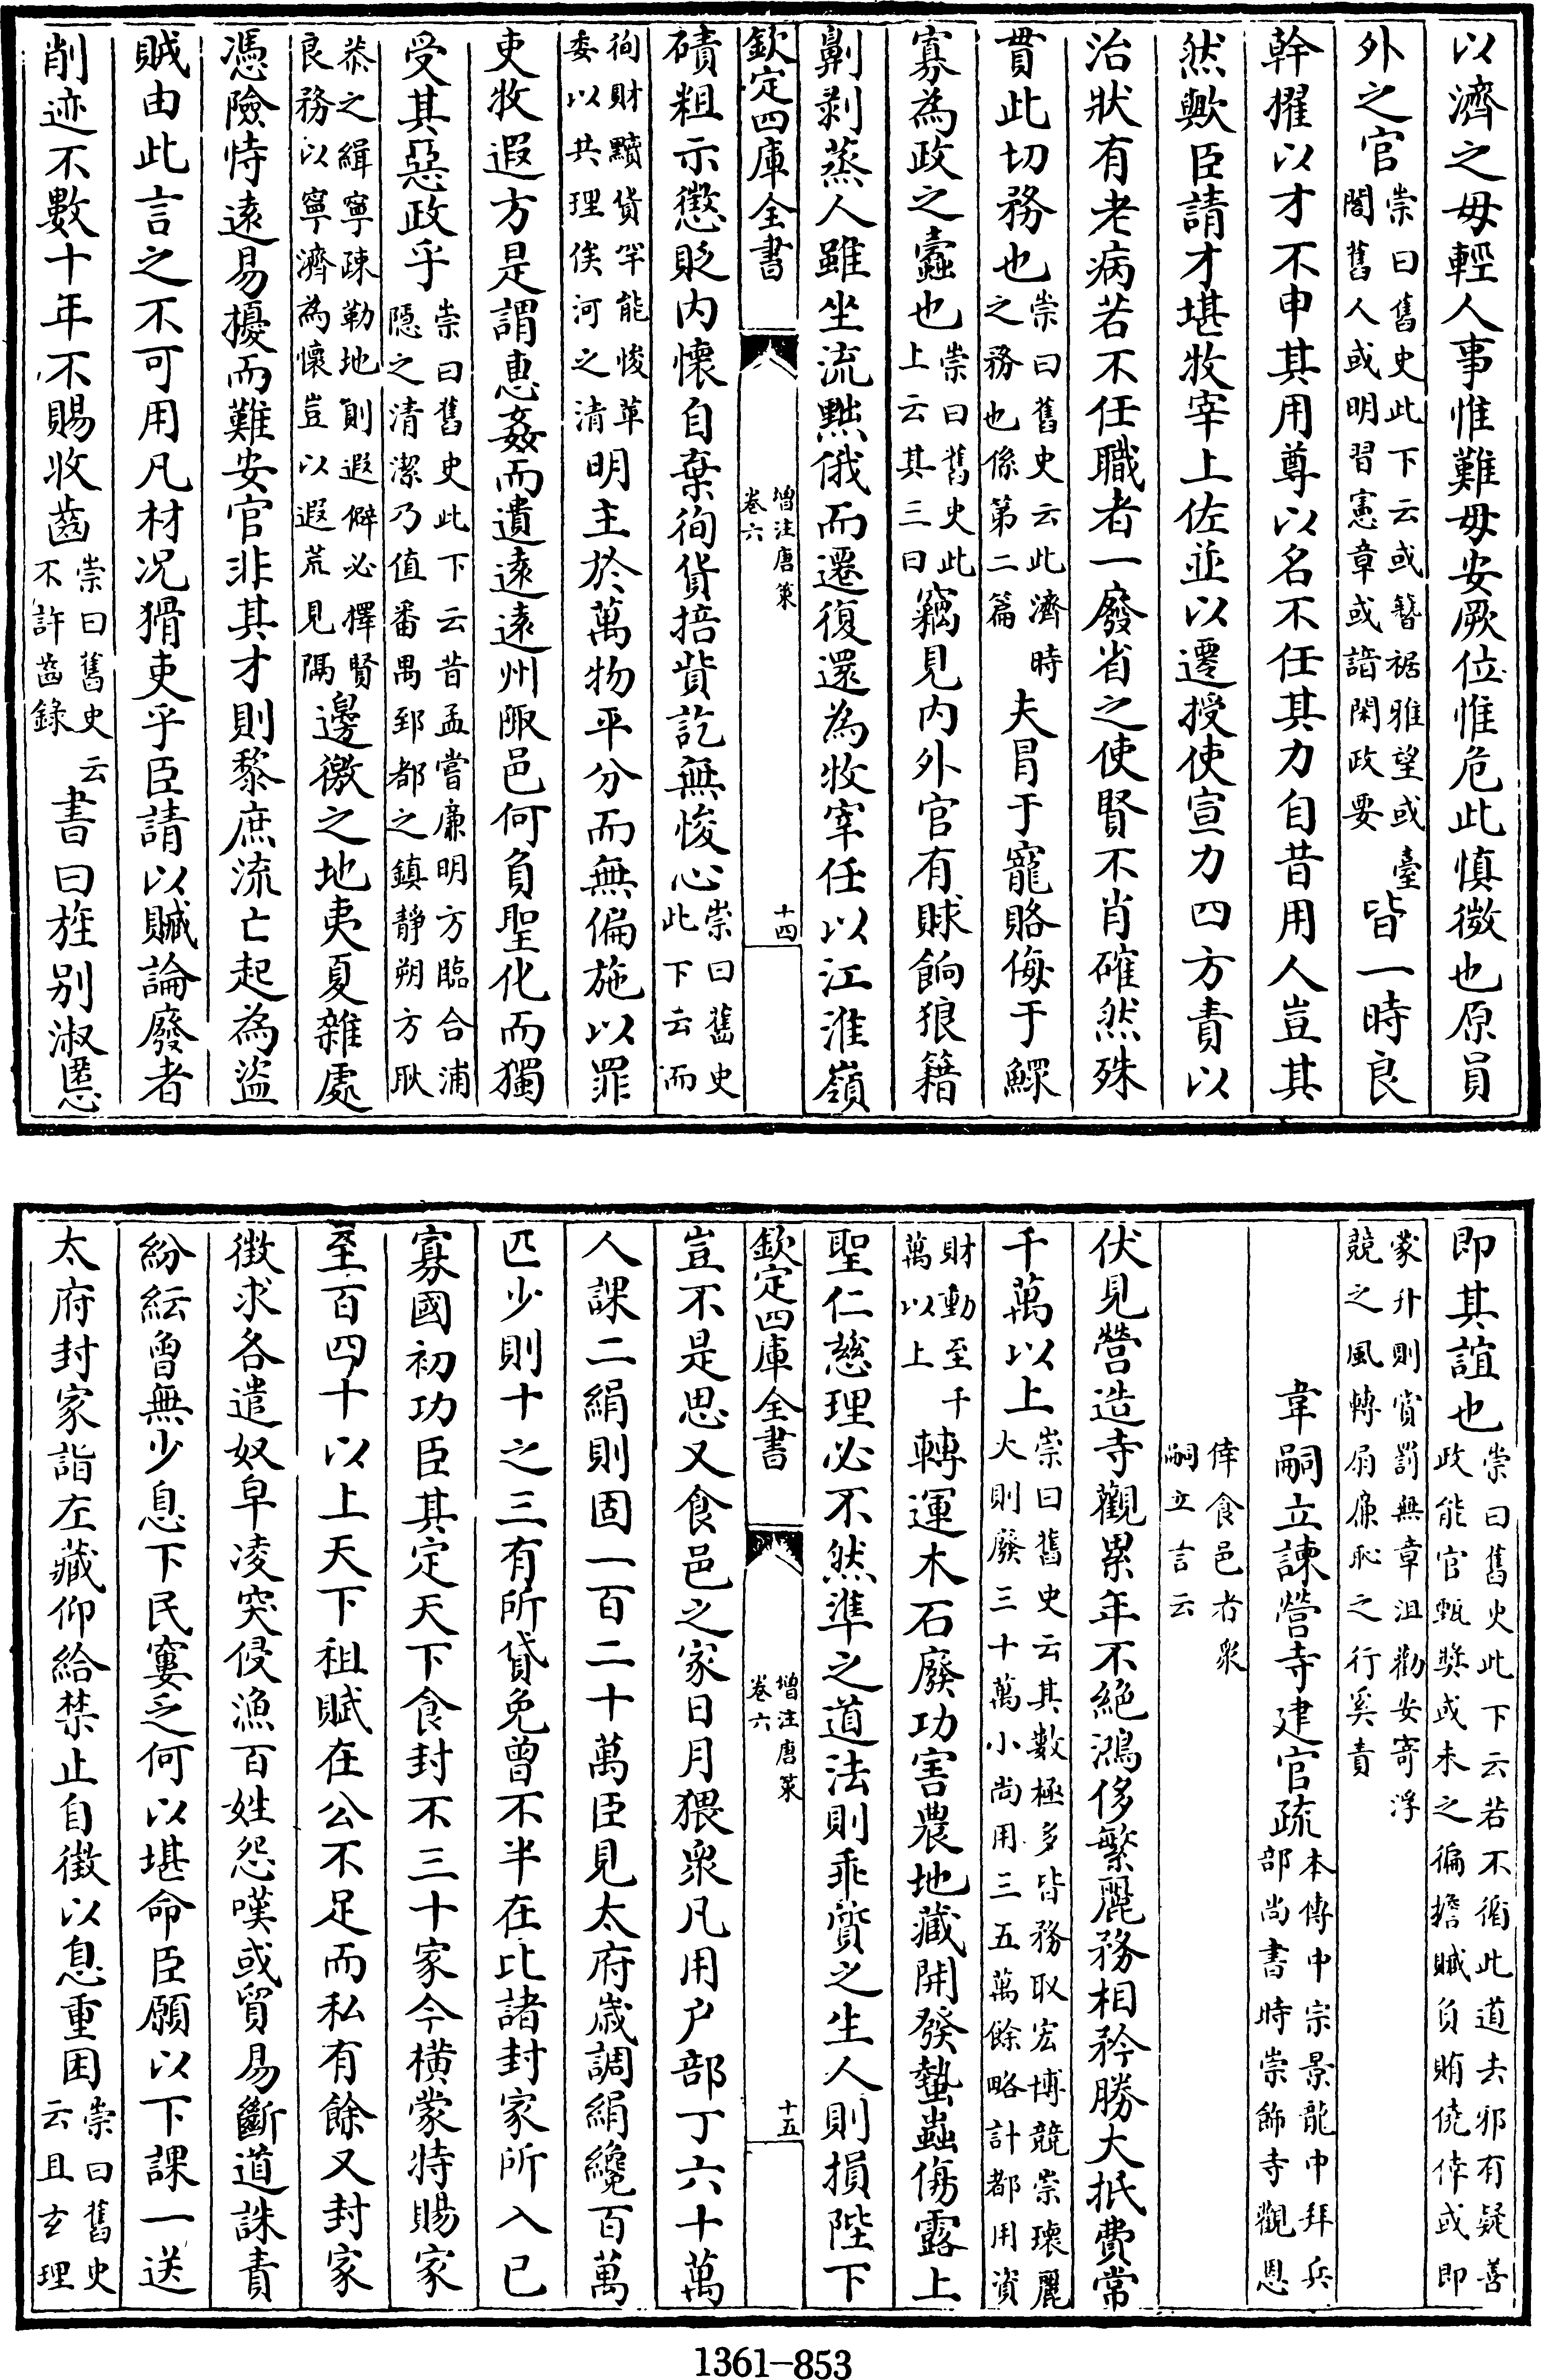 以濟之毋輕人事惟難毋安厥位惟危此慎微也原員
外之官崇曰舊史此下云或簪裾雅望或臺閣舊人或明習憲章或諳閑政要皆一時良
幹擢以才不申其用尊以名不任其力自昔用人豈其
然歟臣請才堪牧宰上佐並以遷授使宣力四方責以
治狀有老病若不任職者一廢省之使賢不肖確然殊
貫此切務也崇曰舊史云此濟時之務也係第二篇夫冒于寵賂侮于鰥
寡為政之蠧也崇曰舊史此上云其三曰竊見内外官有賕餉狼籍
劓剥蒸人雖坐流黜俄而遷復還為牧宰任以江淮嶺
欽定四庫全書 增注唐策 卷六 十四
磧粗示懲貶内懷自棄徇貨掊貲訖無悛心崇曰舊史此下云而
徇財黷貨罕能悛革委以共理俟河之清明主於萬物平分而無偏施以罪
吏牧遐方是謂惠姦而遺遠遠州陬邑何負聖化而獨
受其惡政乎崇曰舊史此下云昔孟嘗廉明方臨合浦隠之清潔乃值番禺郅都之鎮靜朔方耿
恭之緝寧疎勒地則遐僻必擇賢良務以寧濟為懷豈以遐荒見隔邊徼之地夷夏雜處
憑險恃遠易擾而難安官非其才則黎庶流亡起為盜
賊由此言之不可用凡材况猾吏乎臣請以贓論廢者
削迹不數十年不賜收齒崇曰舊史云不許齒錄書曰旌别淑慝
即其誼也崇曰舊史此下云若不循此道去邪有疑善政能官甄奬或未之徧擔贓負賄僥倖或即
蒙升則賞罰無章沮勸安寄浮競之風轉扇廉恥之行奚責
韋嗣立諫營寺建官疏本傳中宗景龍中拜兵部尚書時崇飾寺觀恩
倖食邑者衆嗣立言云
伏見營造寺觀累年不絶鴻侈繁麗務相矜勝大抵費常
千萬以上崇曰舊史云其數極多皆務取宏博競崇瓌麗大則廢三十萬小尚用三五萬餘略計都用資
財動至千萬以上轉運木石廢功害農地藏開發蟄蟲傷露上
聖仁慈理必不然準之道法則乖質之生人則損陛下
欽定四庫全書 增注唐策 卷六 十五
豈不是思又食邑之家日月猥衆凡用户部丁六十萬
人課二絹則固一百二十萬臣見太府歲調絹纔百萬
匹少則十之三有所貸免曾不半在比諸封家所入已
寡國初功臣其定天下食封不三十家今横蒙特賜家
至百四十以上天下租賦在公不足而私有餘又封家
徴求各遣奴皁凌突侵漁百姓怨嘆或貿易斷道誅責
紛紜曾無少息下民窶乏何以堪命臣願以下課一送
太府封家詣左藏仰給禁止自徴以息重困崇曰舊史云且玄理
1361-853